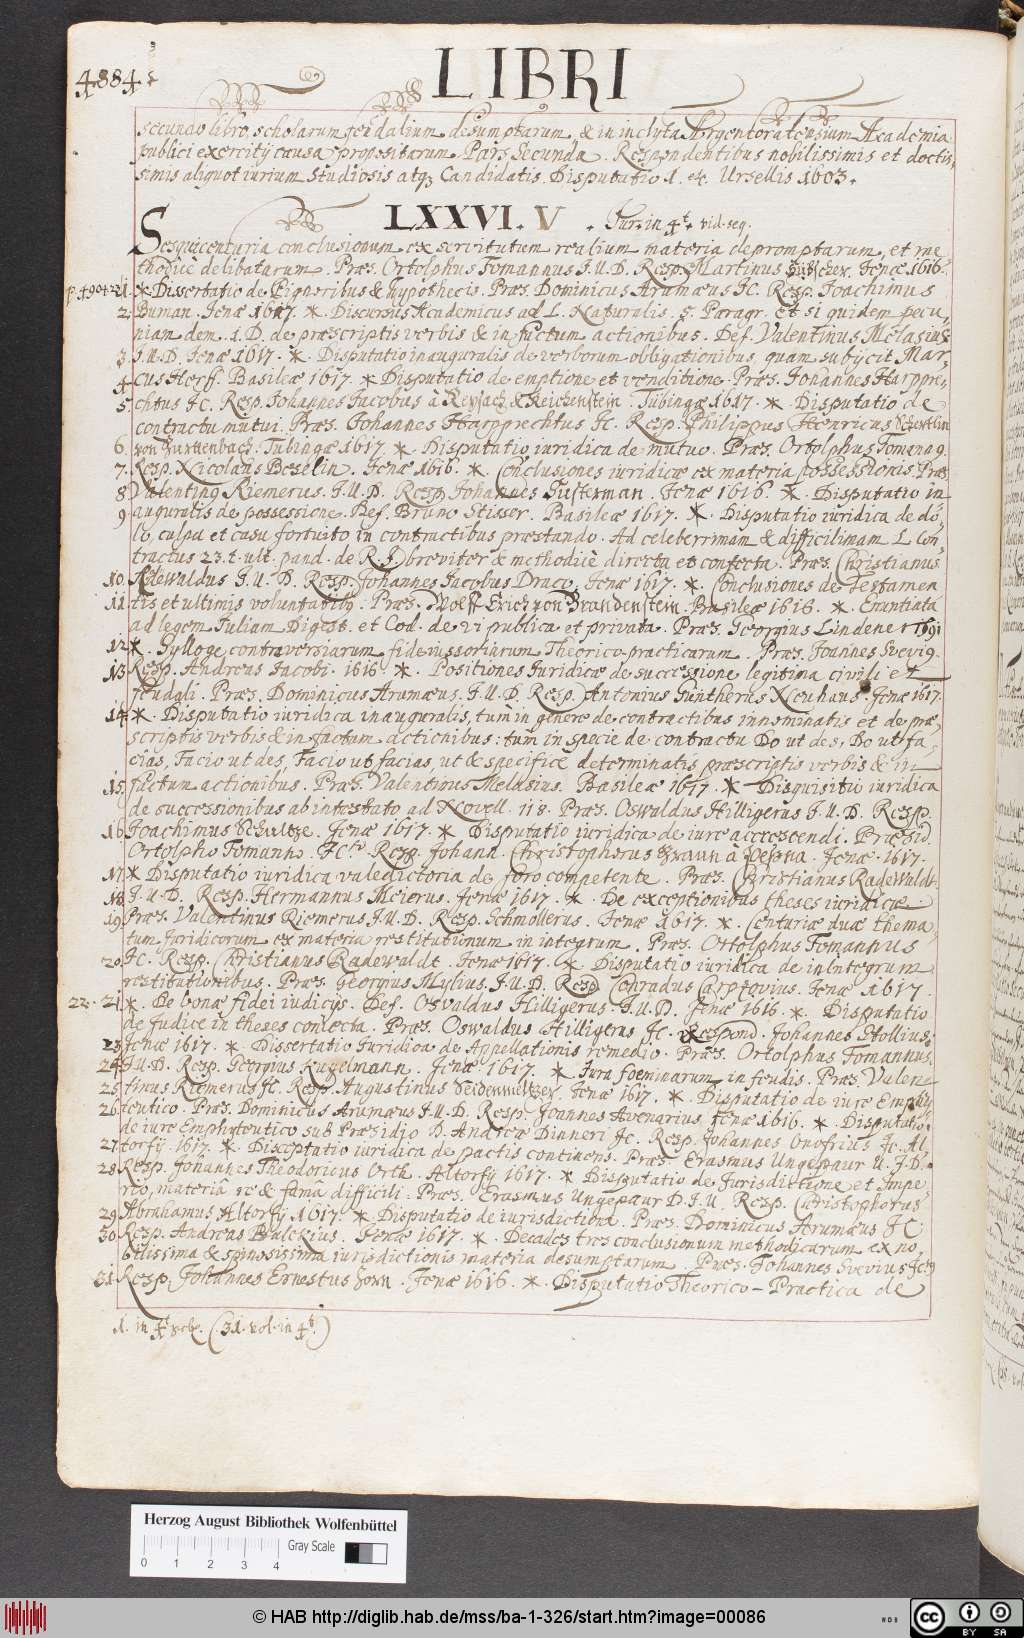 4884
LIBRI
secundo libro, scholarum feudalium desumptarum & in inclyta Argentoratensium Academia
publici exercitij causa propositarum Pars Secunda. Respondentibus nobilissimis et doctis-
simis aliquot iurium Studiosis atq; Candidatis. Disputatio 1. et. Ursellis 1603.
LXXVI. V. Jur. in 4t. vid. seq.
Sesquicenturia conclusionum ex servitutum realium materia depromptarum, et me-
thodicè delibatarum. Præs. Ortolphus Tomannus J.U.D. Resp. Martinus Jenæ 1616.
1. * Dissertatio de Pignoribus & hypothecis. Præs. Dominicus Arumæus JC. Resp. Joachimus
2. Buman. Jenæ 1617. * Discursus Academicus ad L. Naturalis. 5. Paragr. Et si quidem pecu-
niam dem. 1. D. de præscriptis verbis & in factum actionibus. Def. Valentinus Melasius
3. J.U.D. Jenæ 1617. * Disputatio inauguralis de verborum obligationibus, quam subijcit Mar-
4. cus Herff. Basileæ 1617. * Disputatio de emptione et venditione Præs. Johannes Harppre-
5. chtus JC. Resp. Johannes Jacobus à Reysach & Reichenstein. Tubingæ 1617. * Disputatio de
contractu mutui. Præs. Johannes Harpprechtus JC. Resp. Philippus Henricus Schertlin
6. von Burttenbach. Tubingæ 1617. * Disputatio iuridica de mutuo. Præs. Ortolphus Tomann9.
7. Resp. Nicolaus Beselin. Jenæ 1616. * Conclusiones iuridicæ ex materia possessionis Præs.
8. Valentin9 Riemerus. J.U.D. Resp. Johannes Susterman. Jenæ 1616. * Disputatio in
9. auguralis de possessione. Def. Bruno Stisser. Basileæ 1617. * Disputatio iuridica de do-
lo, culpa et casu fortuito in contractibus præstando. Ad celeberrimam & difficilimam L Con-
tractus 23. t. ult. pand. de R.J. breviter & methodicè directa et confecta. Præs. Christianus
10. Radewaldus J.U.D. Resp. Johannes Jacobus Draco. Jenæ 1617. * Conclusiones de Testamen
11. tis et ultimis voluntatib9. Præs. Wolff Erich von Brandenstein. Basileæ 1616. * Enuntiata
ad legem Juliam Digest. et Cod. de vi publica et privata. Præs. Georgius Lindener 1691
12. *. Sylloge controversiarum fideiussoriarum Theorico-practicarum. Præs. Joannes Svevi9.
13. Resp. Andreas Jacobi. 1616. *. Positiones Juridicæ de successione legitima civili et
feudali. Præs. Dominicus Arumæus. J.U.D. Resp. Antonius Güntherus Neuhaus. Jenæ 1617.
14. *. Disputatio iuridica inauguralis, tum in genere de contractibus innominatis et de præ-
scriptis verbis & in factum actionibus: tum in specie de contractu Do ut des, Do ut fa-
cias, Facio ut des, Facio ut facias, ut & specificè determinatis præscriptis verbis & in
15. factum actionibus. Præs. Valentinus Melasius. Basileæ 1617. * Disquisitio iuridica
de successionibus ab intestato ad Novell. 118. Præs. Oswaldus Hilligerus J.U.D. Resp.
16. Joachimus Schultze. Jenæ 1617. * Disputatio iuridica de iure accrescendi. Præsid.
Ortolpho Tomanno. JCto. Resp. Johann. Christophorus Braun à Jenæ. 1617.
17. * Disputatio iuridica valedictoria de foro competente. Præs. Christianus Radewaldt
18. J.U.D. Resp. Hermannus Meierus. Jenæ 1617. * De exceptionibus theses iuridicæ
19. Præs. Valentinus Riemerus J.U.D. Resp. Schmollerus. Jenæ 1617. * Centuriæ duæ thema-
tum Juridicorum ex materia restitutionum in integrum. Præs. Ortolphus Tomannus
20. JC. Resp. Christianus Radewaldt. Jenæ 1617. * Disputatio iuridica de in integrum
restitutionibus. Præs. Georgius Mylius. J.U.D. Resp. Conradus Carpzovius. Jenæ 1617.
22. 21. *. De bonæ fidei iudicijs. Def. Osvaldus Hilligerus. J.U.D. Jenæ 1616. *. Disputatio
de Judice in theses coniecta. Præs. Oswaldus Hilligerus JC. Respond. Johannes Stollius.
23. Jenæ 1617. * Dissertatio Juridica de Appellationis remedio. Præs. Ortolphus Tomannus.
24. J.U.D. Resp. Georgius Kugelmann. Jenæ 1617. * Jura foeminarum in feudis. Præs. Valen-
25. tinus Riemerus JC. Resp. Augustinus Jenæ 1617. * Disputatio de iure Emphy-
26. teutico. Præs. Dominicus Arumæus J.U.D. Resp. Joannes Avenarius. Jenæ 1616. * Disputatio
de iure Emphyteutico sub Præsidio D. Andreæ Dinneri JC. Resp. Johannes Onofrius JC. Al-
27. torfij 1617. * Disceptatio iuridica de pactis continens. Præs. Erasmus Ungepaur U.J.D.
28. Resp. Johannes Theodoricus Orth. Altorfij 1617. * Disputatio de Jurisdictione et Impe-
rio, materiâ re & famâ difficili. Præs. Erasmus Ungepaur D.J.U. Resp. Christophorus
29. Abrahamus Altorfij 1617. * Disputatio de iurisdictione. Præs. Dominicus Arumæus JC
30. Resp. Andreas Balckius. Jenæ 1617. * Decades tres conclusionum methodicarum ex no-
bilissima & spinosissima iurisdictionis materia desumptarum. Præs. Johannes Svevius JCt9
31. Resp. Johannes Ernestus Jenæ 1616. * Disputatio Theorico-Practica de
1. in 4t (31. vol. in 4t.)
Herzog August Bibliothek Wolfenbüttel
Gray Scale
0 1 2 3 4
© HAB http://diglib.hab.de/mss/ba-1-326/start.htm?image=00086
WDB
cc BY SA